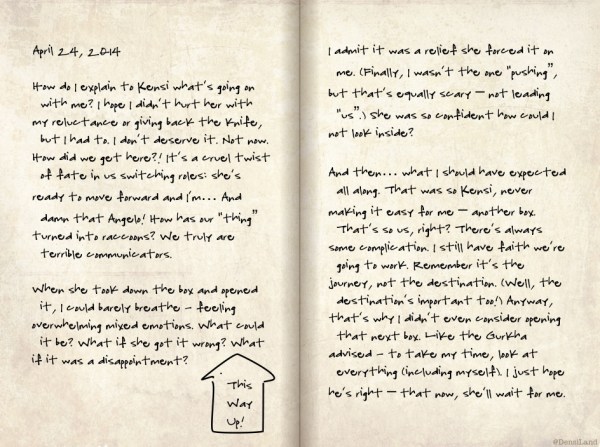 April 24, 2014
How do I explain to Kensi what's going on
with me? I hope I didn't hurt her with
my reluctance or giving back the knife,
but I had to. I don't deserve it. Not now.
How did we get here?! It's a cruel twist
of fate in us switching roles: she's
ready to move forward and I'm... And
damn that Angelo! How has our "thing"
turned into raccoons? We truly are
terrible communicators.
When she took down the box and opened
it, I could barely breathe – feeling
overwhelming mixed emotions. What could
it be? What if she got it wrong? What
if it was a disappointment?
This
Way
Up!
I admit it was a relief she forced it on
me. (Finally, I wasn't the one "pushing",
but that's equally scary – not leading
"us".) She was so confident how could I
not look inside?
And then... what I should have expected
all along. That was so Kensi, never
making it easy for me – another box.
That's so us, right? There's always
some complication. I still have faith we're
going to work. Remember it's the
journey, not the destination. (Well, the
destination's important too!) Anyway,
that's why I didn't even consider opening
that next box. Like the Gurkha
advised – to take my time, look at
everything (including myself). I just hope
he's right – that now, she'll wait for me.
@DensiLand